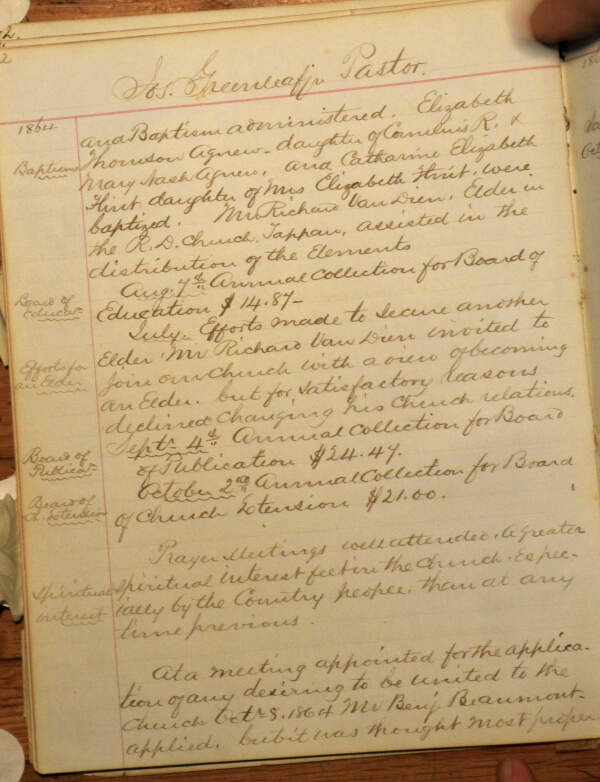 2.
2
Jos. Greenleaf jr Pastor.
1864
and Baptism administered. Elizabeth
Baptism
Thomson Agnew - daughter of Cornelius R. &
Mary Nash Agnew, and Catharine Elizabeth
Flint daughter of Mrs Elizabeth Flint, were
baptized. Mr Richard Van Dien, Elder in
the R. D. Church, Tappan, assisted in the
distribution of the Elements
Aug. 7th Annual Collection for Board of
Board of
Educat.
Education $14.87-
July. Efforts made to secure another
Efforts for
an Elder
Elder. Mr Richard Van Dien invited to
join our Church with a view of becoming
an Elder. but for satisfactory reasons
declined changing his Church relations.
Sept. 4th Annual Collection for Board
Board of
Publicat.
of Publication $24.47.
October 2nd Annual Collection for Board
Board of
Ch. Extension
of Church Extension $21.00.
Prayer Meetings well attended. A greater
Spiritual
interest
spiritual interest felt in the Church. Espec-
ially by the Country people, than at any
time previous.
At a meeting appointed for the applica-
tion of any desiring to be united to the
Church Oct. 8. 1864 Mr Benj Beaumont
applied. but it was thought most proper